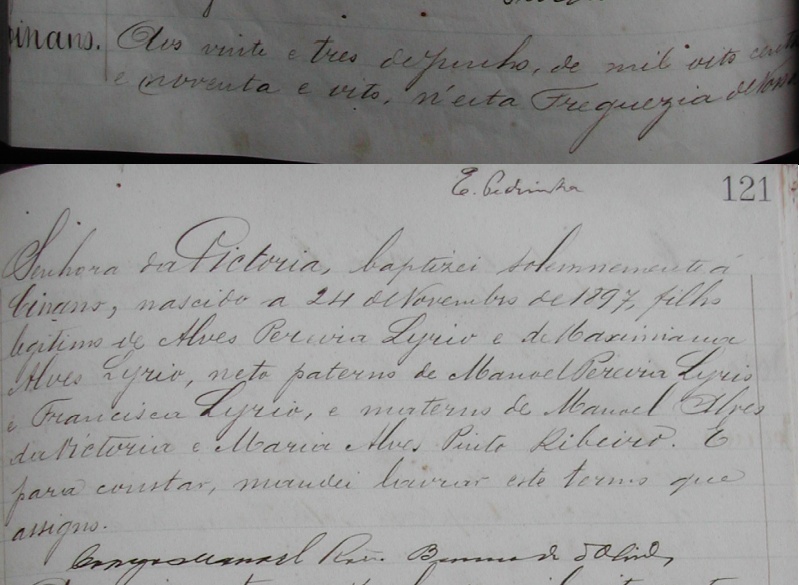 Aos vinte e tres de Junho, de mil oito cento
e noventa e oito, n'esta Freguezia de Nossa
121
Senhora da Victoria, baptizei solemnemente á
nascido a 24 de Novembro de 1897, filho
legitimo de Alves Pereira Lyrio e de Maximiana
Alves Lyrio, neto paterno de Manoel Pereira Lyrio
e Francisca Lyrio, e materno de Manoel Alves
da Victoria e Maria Alves Pinto Ribeiro. E
para constar, mandei lavrar este termo que
assigno.